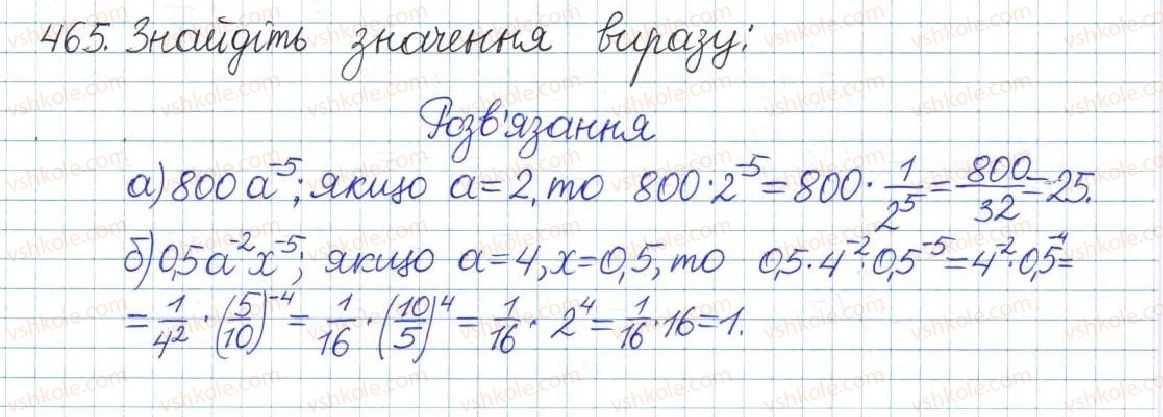 465. Знайдіть значення виразу:
Розв'язання
а) 800 a⁻⁵; якщо a = 2, то 800 · 2⁻⁵ = 800 · 1/2⁵ = 800/32 = 25.
б) 0,5 a⁻² x⁻⁵; якщо a = 4, x = 0,5, то 0,5 · 4⁻² · 0,5⁻⁵ = 4⁻² · 0,5⁻⁴ =
= 1/4² · (5/10)⁻⁴ = 1/16 · (10/5)⁴ = 1/16 · 2⁴ = 1/16 · 16 = 1.